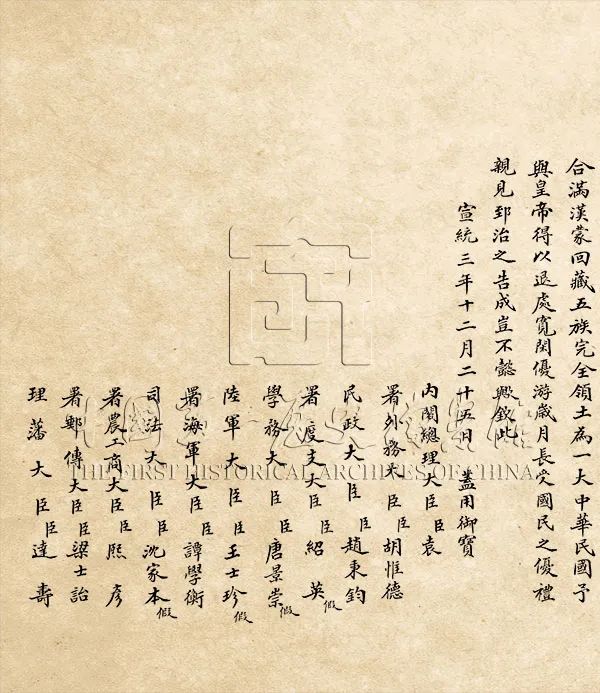 合滿漢蒙回藏五族完全領土為一大中華民國予
與皇帝得以退處寬閒優游歲月長受國民之優禮
親見郅治之告成豈不懿歟欽此
宣統三年十二月二十五日 蓋用御寶
內閣總理大臣臣袁
署外務大臣臣胡惟德
民政大臣臣趙秉鈞
署度支大臣臣紹英假
學務大臣臣唐景崇假
陸軍大臣臣王士珍假
署海軍大臣臣譚學衡
司法大臣臣沈家本假
署農工商大臣臣熙彥
署郵傳大臣臣梁士詒
理藩大臣臣達壽
THE FIRST HISTORICAL ARCHIVES OF CHINA